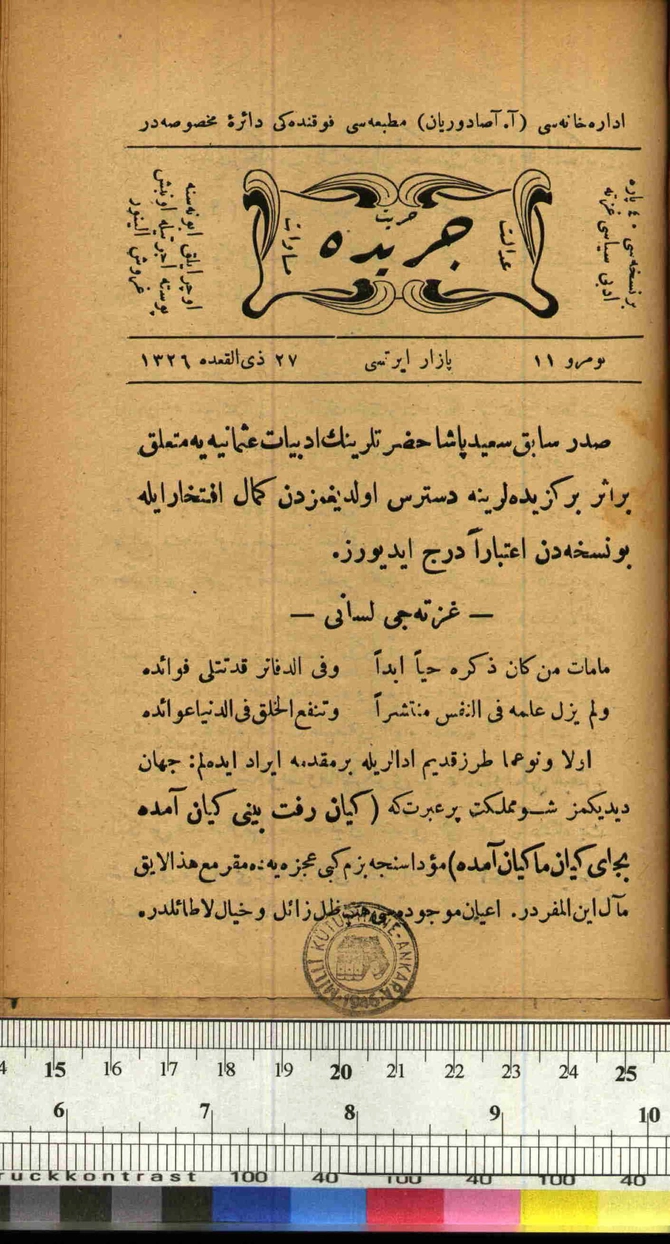 اداره‌خانه‌سی (آ.آصادوریان) مطبعه‌سی فوقنده‌کی دائرهٔ مخصوصه‌در
بر نسخه‌سی ٤٠ پاره
ادبی سیاسی غزته
عدالت
حریت
جریده
مساوات
اوچ آیلق ابونه‌سنه
پوسته اجرتیله اونبش
غروش آلینور
نومرو ١١
پازار ایرتسی
٢٧ ذی‌القعده ١٣٢٦
صدر سابق سعید پاشا حضرتلرینك ادبیات عثمانیه‌یه متعلق
بر اثر برکزیده‌لرینه دسترس اولدیغمزدن کمال افتخار ایله
بو نسخه‌دن اعتباراً درج ایدیورز.
— غزته‌جی لسانی —
مامات من کان ذکره حیاً ابداً وفی الدفاتر قدتتلی فوائده
ولم یزل علمه فی النفس منتشراً وتنفع الخلق فی الدنیا عوائده
اولا ونوعما طرز قدیم ادالریله بر مقدمه ایراد ایده‌لم: جهان
دیدیکمز شو مملکت پرعبرتکه (کیان رفت بینی کیان آمده
بجای کیان ماکیان آمده) مؤداسنجه بزم کبی عجزه‌یه‌ده مقر مع هذا لایق
مآل این المفردر. اعیان موجوده ظل زائل و خیال لاطائلدر.
MİLLİ KÜTÜPHANE-ANKARA
1946
4 15 16 17 18 19 20 21 22 23 24 25
6 7 8 9 10
ruckkontrast 100 40 100 40 100 40